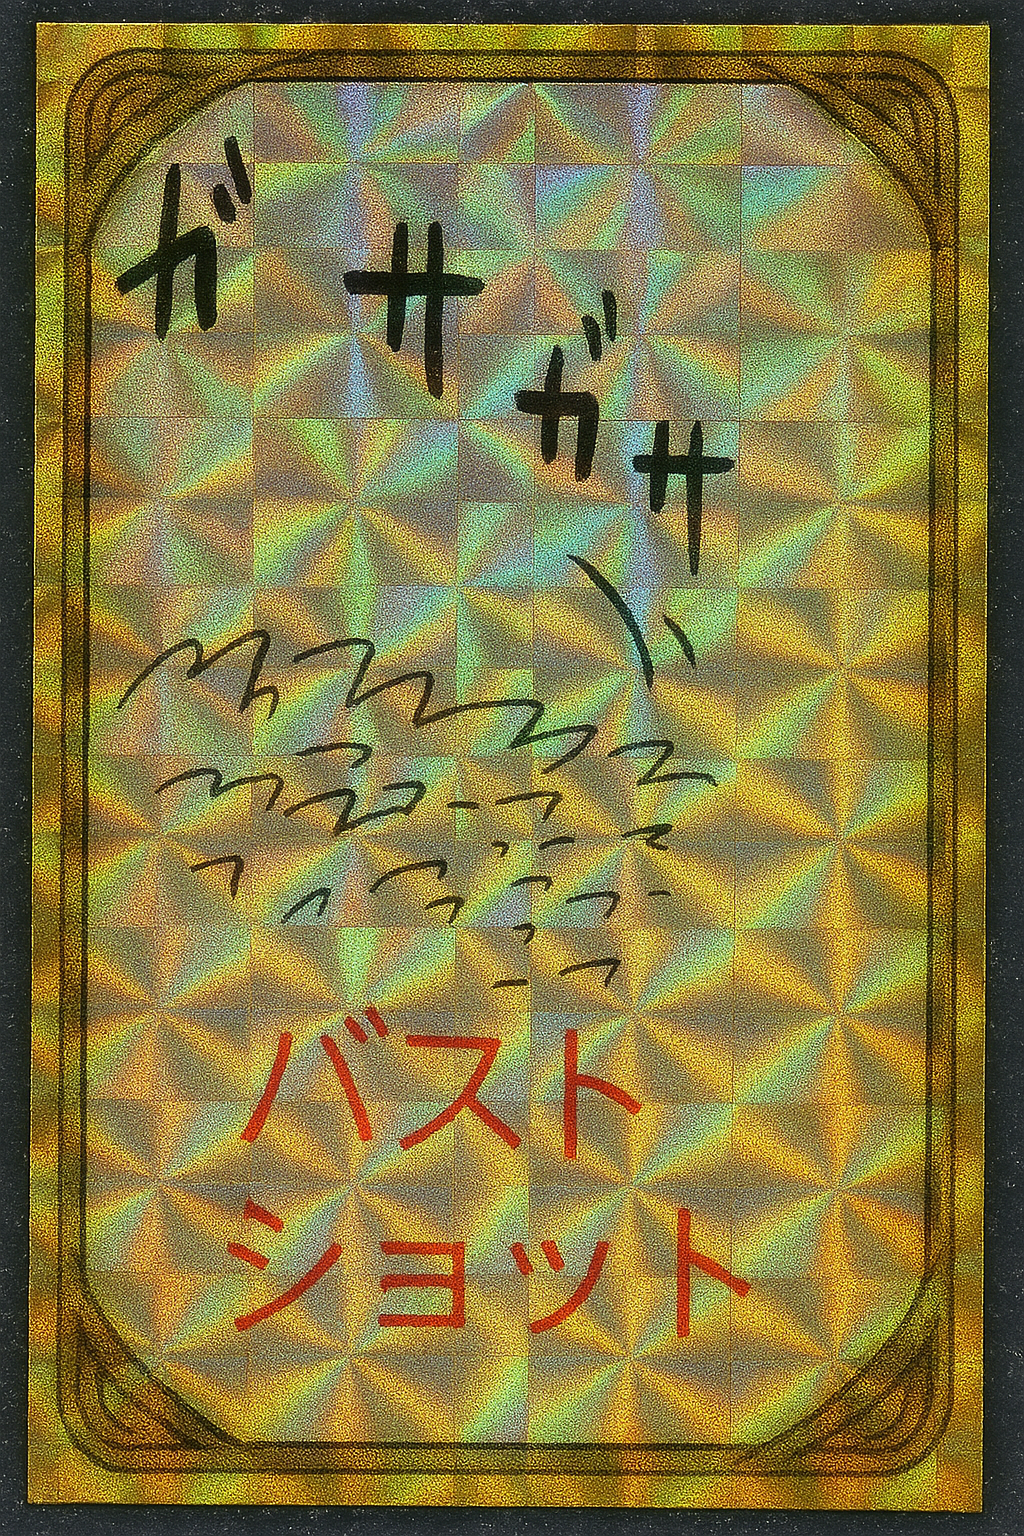 ガサガサ
バスト
ショット